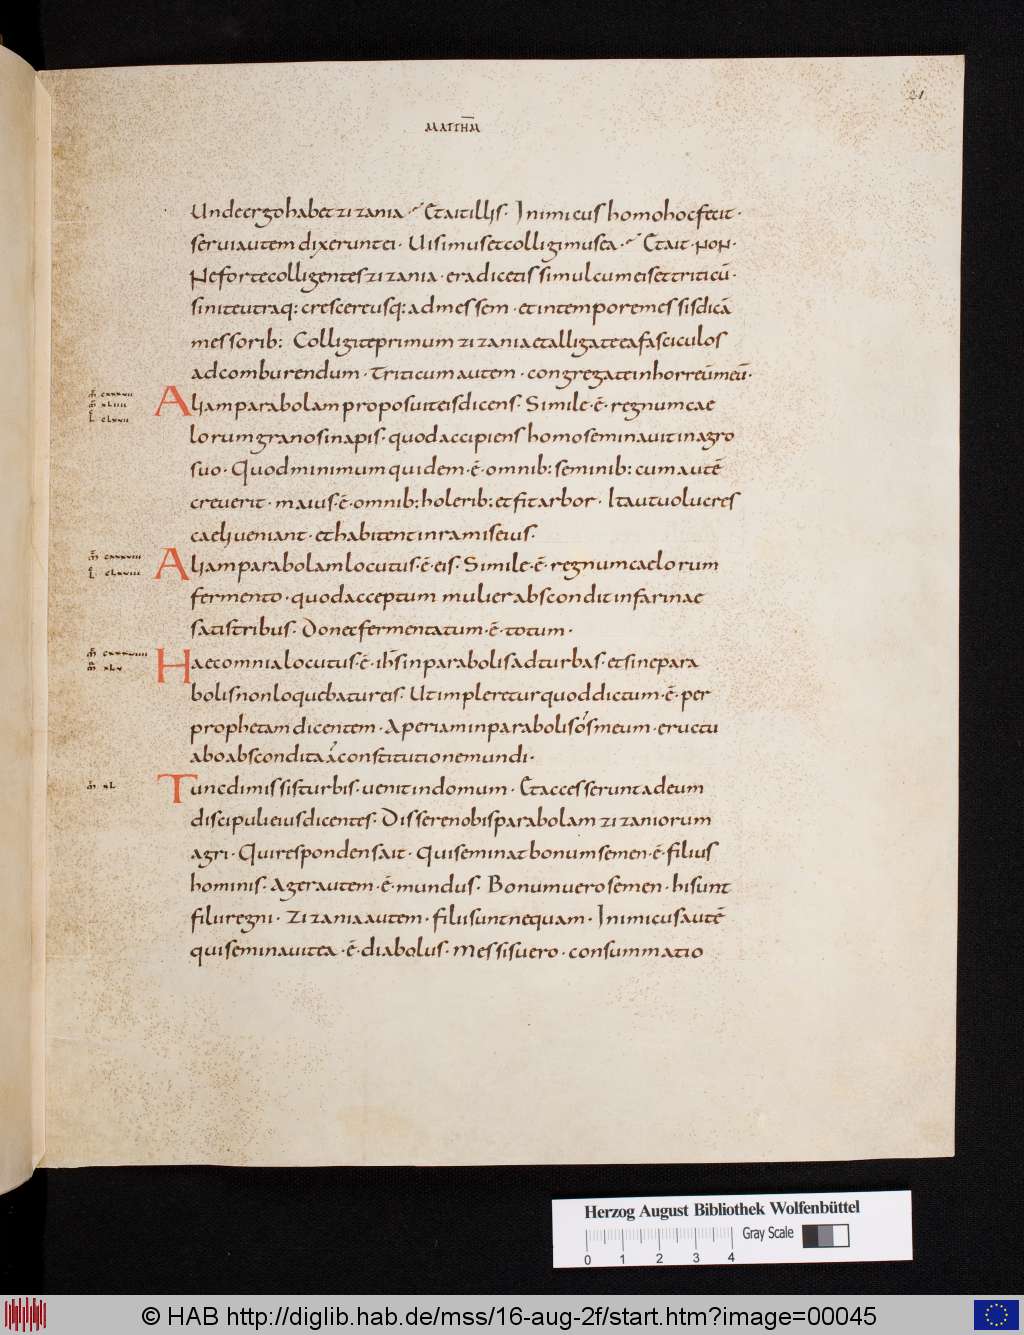 21
MATTHM̅
Unde ergo habet zizania· Et ait illis· Inimicus homo hoc fecit·
serui autem dixerunt ei· Uis imus et colligimus ea· Et ait· NON·
Ne forte colligentes zizania· eradicetis simul cum eis et triticū·
sinite utraq: crescere usq: ad messem· et in tempore messis dicā
messorib: Colligite primum zizania et alligate ea fasciculos
ad comburendum· Triticum autem· congregate in horreū meū·
m̄ cxxxvii
m̄ xliiii
L clxvii
Aliam parabolam proposuit eis dicens· Simile· ē· regnum cae
lorum grano sinapis· quod accipiens homo seminauit in agro
suo· Quod minimum quidem· ē· omnib: seminib: cum autē
creuerit· maius· ē· omnib: holerib: et fit arbor· Ita ut uolucres
caeli ueniant· et habitent in ramis eius·
m̄ cxxxviii
L clxviii
Aliam parabolam locutus· ē· eis· Simile· ē· regnum caelorum
fermento· quod acceptum mulier abscondit in farinae
satis tribus· Donec fermentatum· ē· totum·
m̄ cxxxviiii
m̄ xlv
Haec omnia locutus· ē· ihs̄ in parabolis ad turbas· et sine para
bolis non loquebatur eis· Ut impleretur quod dictum· ē· per
prophetam dicentem· Aperiam in parabolis os meum· eructu
abo abscondita a constitutione mundi·
m̄ xl
Tunc dimissis turbis· uenit in domum· Et accesserunt ad eum
discipuli eius dicentes· Dissere nobis parabolam zizaniorum
agri· Qui respondens ait· Qui seminat bonum semen· ē· filius
hominis· Ager autem· ē· mundus· Bonum uero semen· hi sunt
filii regni· Zizania autem· filii sunt nequam· Inimicus autē
qui seminauit ea· ē· diabolus· Messis uero· consummatio
Herzog August Bibliothek Wolfenbüttel
Gray Scale
0 1 2 3 4
© HAB http://diglib.hab.de/mss/16-aug-2f/start.htm?image=00045